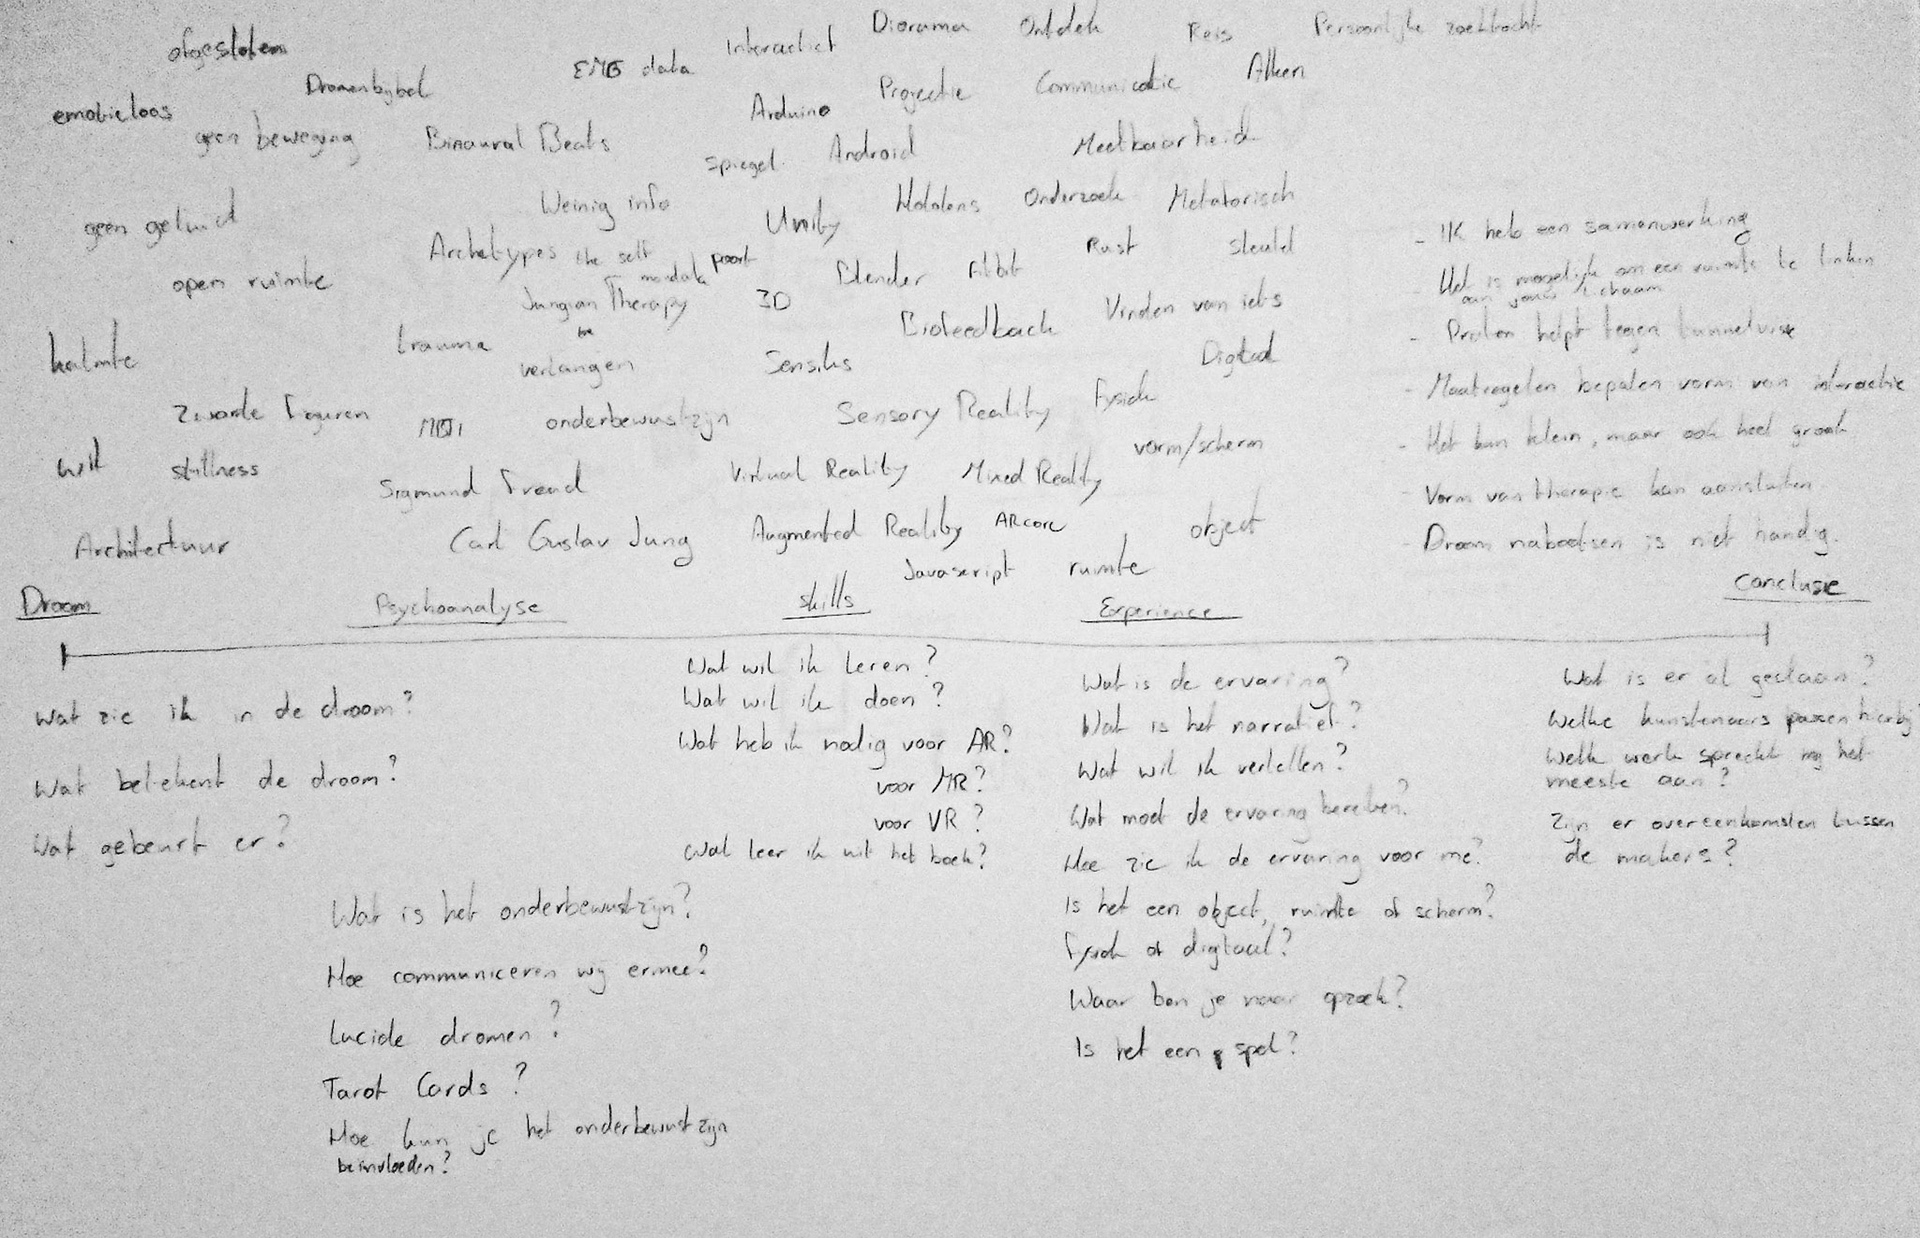 afgesloten
emotieloos
geen beweging
geen geluid
open ruimte
kalmte
Zwarte figuren
wit
stillness
Architectuur
Droom
Dromenbijbel
Binaural Beats
Weinig info
Archetypes the self
Jungian Therapy
trauma
verlangen
MBTI
onderbewustzijn
Sigmund Freud
Carl Gustav Jung
Psychoanalyse
EMG data
Interactief
Diorama
Arduino
Projectie
spiegel
Android
Unity
Hololens
poort
Blender
fitbit
3D
Biofeedback
Sensiks
Sensory Reality
Virtual Reality
Mixed Reality
Augmented Reality
ARcore
Javascript
skills
Ontdek
Reis
Persoonlijke zoektocht
Communicatie
Alleen
Meetbaarheid
Onderzoek
Metaforisch
Rust
sleutel
Vinden van iets
Digitaal
Fysiek
vorm/scherm
object
ruimte
Experience
- IK heb een samenwerking
- Het is mogelijk om een ruimte te linken
aan jouw lichaam
- Praten helpt tegen tunnelvisie
- Maatregelen bepalen vorm van interactie
- Het kan klein, maar ook heel groot
- Vorm van therapie kan aansluiten
- Droom nabootsen is niet handig.
Conclusie
Wat zie ik in de droom?
Wat betekent de droom?
Wat gebeurt er?
Wat is het onderbewustzijn?
Hoe communiceren wij ermee?
Lucide dromen?
Tarot Cards?
Hoe kun je het onderbewustzijn
beïnvloeden?
Wat wil ik leren?
Wat wil ik doen?
Wat heb ik nodig voor AR?
voor MR?
voor VR?
Wat leer ik uit het boek?
Wat is de ervaring?
Wat is het narratief?
Wat wil ik vertellen?
Wat moet de ervaring bereiken?
Hoe zie ik de ervaring voor me?
Is het een object, ruimte of scherm?
Fysiek of digitaal?
Waar ben je naar opzoek?
Is het een spel?
Wat is er al gedaan?
Welke kunstenaars passen hierbij
Welk werk spreekt mij het
meeste aan?
Zijn er overeenkomsten tussen
de makers?